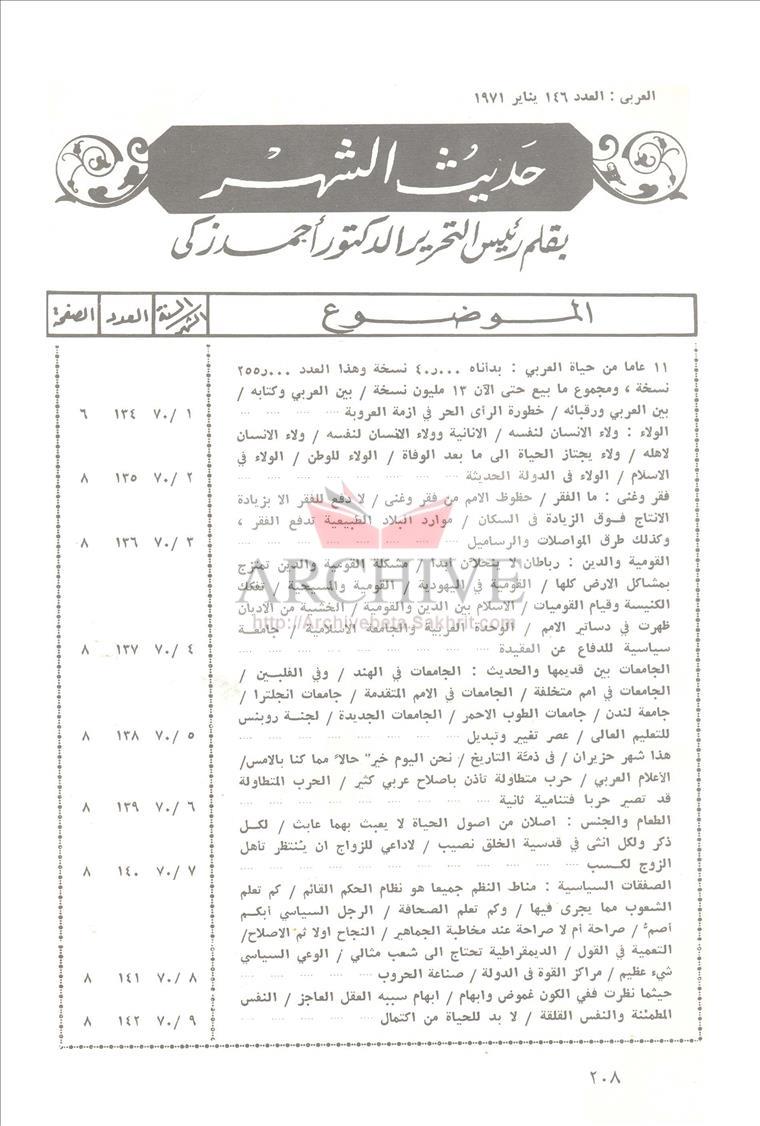 العربى : العدد ١٤٦ يناير ١٩٧١
حَديثُ الشهْر
بقلم رئيس التحرير الدكتور أحمد زكى
الموضوع السنة/الشهر العدد الصفحة
١١ عاما من حياة العربي : بدأناه ...ر٤٠ نسخة وهذا العدد ...ر٢٥٥
نسخة ، ومجموع ما بيع حتى الآن ١٣ مليون نسخة / بين العربي وكتابه /
بين العربي ورقبائه / خطورة الرأى الحر في ازمة العروبة .... ١ /٧٠ ١٣٤ ٦
الولاء : ولاء الانسان لنفسه / الانانية وولاء الانسان لنفسه / ولاء الانسان
لاهله / ولاء يجتاز الحياة الى ما بعد الوفاة / الولاء للوطن / الولاء في
الاسلام / الولاء فى الدولة الحديثة .... ٢ /٧٠ ١٣٥ ٨
فقر وغنى : ما الفقر / حظوظ الامم من فقر وغنى / لا دفع للفقر الا بزيادة
الانتاج فوق الزيادة فى السكان / موارد البلاد الطبيعية تدفع الفقر ،
وكذلك طرق المواصلات والرساميل .... ٣ /٧٠ ١٣٦ ٨
القومية والدين : رباطان لا ينحلان ابدا / مشكلة القومية والدين تمتزج
بمشاكل الارض كلها / القومية في اليهودية / القومية والمسيحية / تفكك
الكنيسة وقيام القوميات / الاسلام بين الدين والقومية / الخشية من الاديان
ظهرت في دساتير الامم / الوحدة العربية والجامعة الاسلامية / جامعة
سياسية للدفاع عن العقيدة .... ٤ /٧٠ ١٣٧ ٨
الجامعات بين قديمها والحديث : الجامعات في الهند / وفي الفلبين /
الجامعات في امم متخلفة / الجامعات في الامم المتقدمة / جامعات انجلترا /
جامعة لندن / جامعات الطوب الاحمر / الجامعات الجديدة / لجنة روبنس
للتعليم العالى / عصر تغيير وتبديل .... ٥ /٧٠ ١٣٨ ٨
هذا شهر حزيران / في ذمّة التاريخ / نحن اليوم خيرٌ حالاً مما كنا بالامس/
الأعلام العربي / حرب متطاولة تأذن باصلاح عربي كثير / الحرب المتطاولة
قد تصير حربا فتنامية ثانية .... ٦ /٧٠ ١٣٩ ٨
الطعام والجنس : اصلان من اصول الحياة لا يعبث بهما عابث / لكل
ذكر ولكل انثى في قدسية الخلق نصيب / لاداعي للزواج ان يُنتظر تأهل
الزوج لكسب .... ٧ /٧٠ ١٤٠ ٨
الصفقات السياسية : مناط النظم جميعا هو نظام الحكم القائم / كم تعلم
الشعوب مما يجرى فيها / وكم تعلم الصحافة / الرجل السياسي أبكم
أصمّ / صراحة أم لا صراحة عند مخاطبة الجماهير / النجاح اولا ثم الاصلاح/
التعمية في القول / الديمقراطية تحتاج الى شعب مثالي / الوعي السياسي
شيء عظيم / مراكز القوة فى الدولة / صناعة الحروب .... ٨ /٧٠ ١٤١ ٨
حيثما نظرت ففي الكون غموض وابهام / ابهام سببه العقل العاجز / النفس
المطمئنة والنفس القلقة / لا بد للحياة من اكتمال .... ٩ /٧٠ ١٤٢ ٨
ARCHIVE
http://Archivebeta.Sakhrit.com
٢٠٨